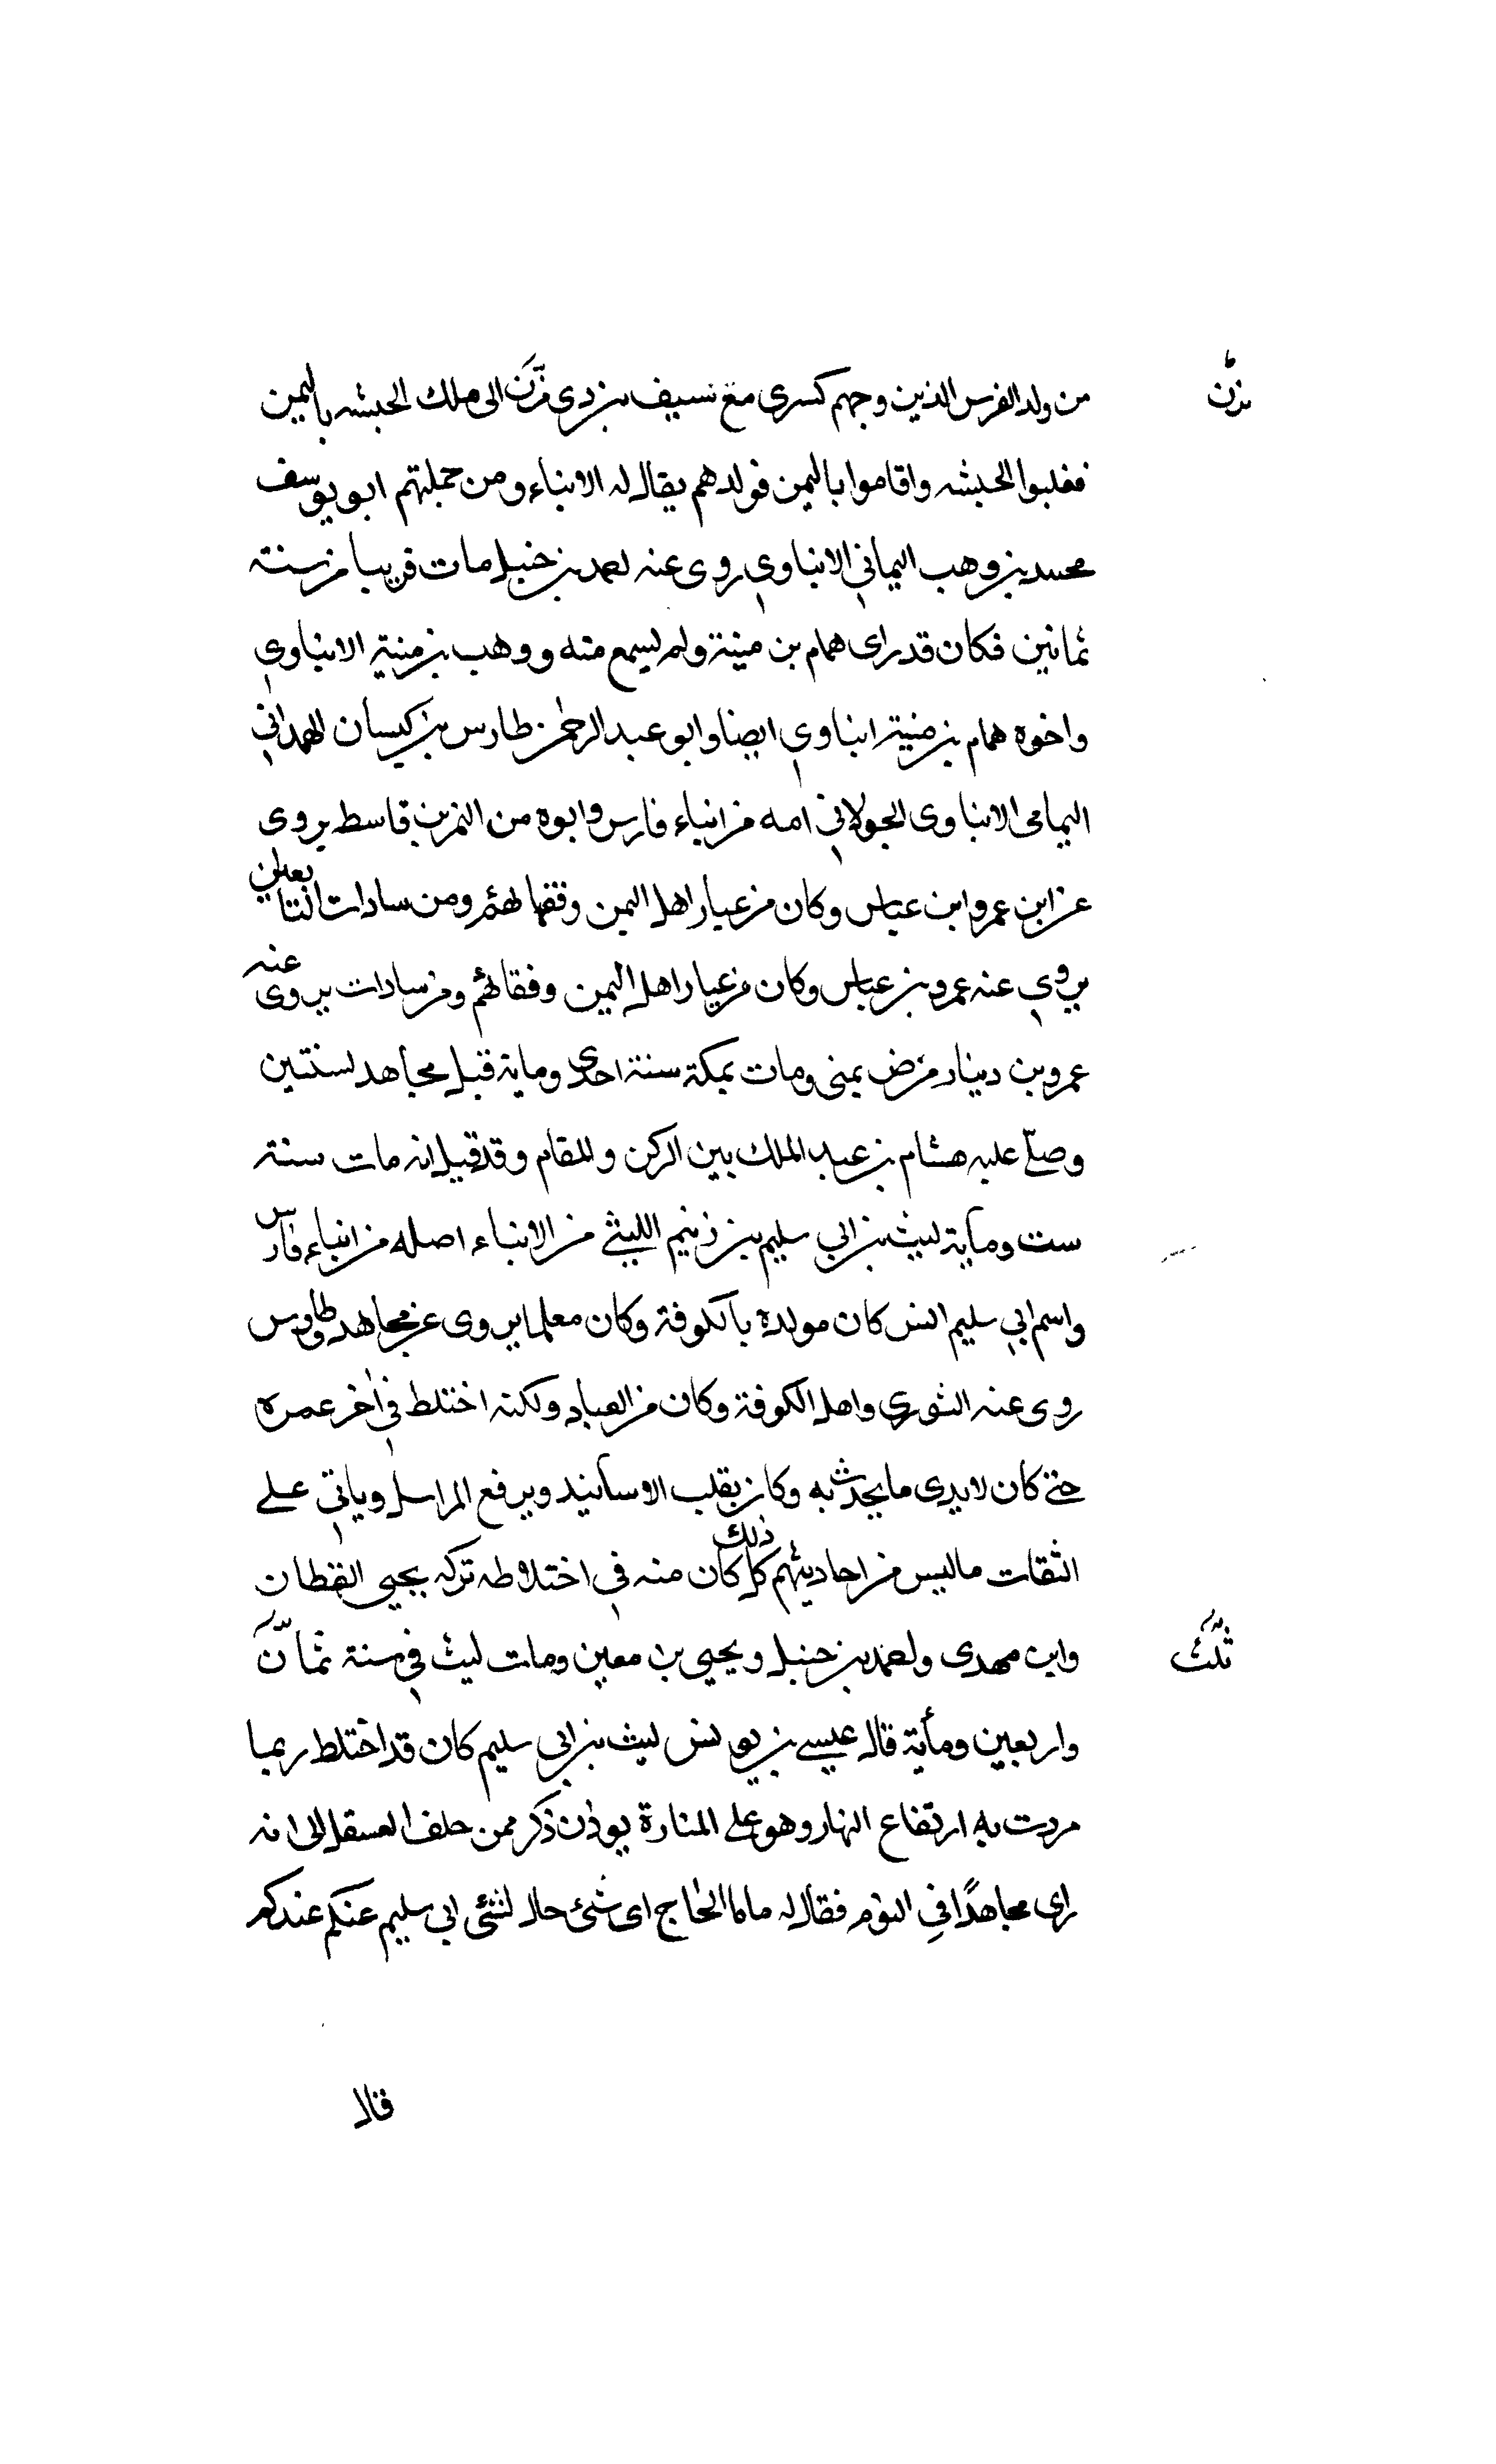 من ولد الفرس الذين وجهم كسرى مع سيف بن ذي مزن الى ملك الحبشه باليمن
يزن
فغلبوا الحبشه واقاموا باليمن فولدهم يقال له الابناء ومن جملتهم ابو يوسف
محمد بن وهب اليماني الابناوي روى عنه احمد بن حنبل مات قريبا من سنة
ثمانين فكان قد راى همام بن منبه ولم يسمع منه ووهب بن منبه الابناوي
واخوه همام بن منبه ابناوي ايضا وابو عبد الرحمن طارس بن كيسان الهمداني
اليمامى الابناوى الجولاني امه من ابناء فارس وابوه من النمر بن قاسط يروى
عن ابن عمر وابن عباس وكان من عباد اهل اليمن وفقهائهم ومن سادات التابعين
يروي عنه عمرو بن عباس وكان من عباد اهل اليمن وفقهائهم ومن سادات يروى عنه
عمرو بن دينار مرض بمنى ومات بمكة سنة احدى وماية قبل مجاهد لسنتين
وصلى عليه هشام بن عبد الملك بين الركن والمقام وقد قيل انه مات سنة
ست وماية ليث بن ابي سليم بن زنيم الليثي من الابناء اصله من ابناء فارس
واسم ابي سليم انس كان مولده بالكوفة وكان معلما يروى عن مجاهد وطاوس
روى عنه الثوري واهل الكوفة وكان من العباد ولكنه اختلط في آخر عمره
حتى كان لا يدرى ما يحدث به وكان يقلب الاسانيد ويرفع المراسل وياتي على
الثقات ما ليس من احاديثهم كل ذلك كان منه في اختلاطه تركه يحيى القطان
وابن مهدى واحمد بن حنبل ويحيى بن معين ومات ليث في سنة ثمان
ثلث
واربعين ومأية قال عيسى بن يونس ليث بن ابي سليم كان قد اختلط ربما
مررت به ارتفاع النهار وهو على المنارة يوذن ذكر ممن حلف العسقلالى انه
راى مجاهدًا في النوم فقال له ماما الحاج اى شئ حال لشئى ابى سليم عنكم عندكم
قال